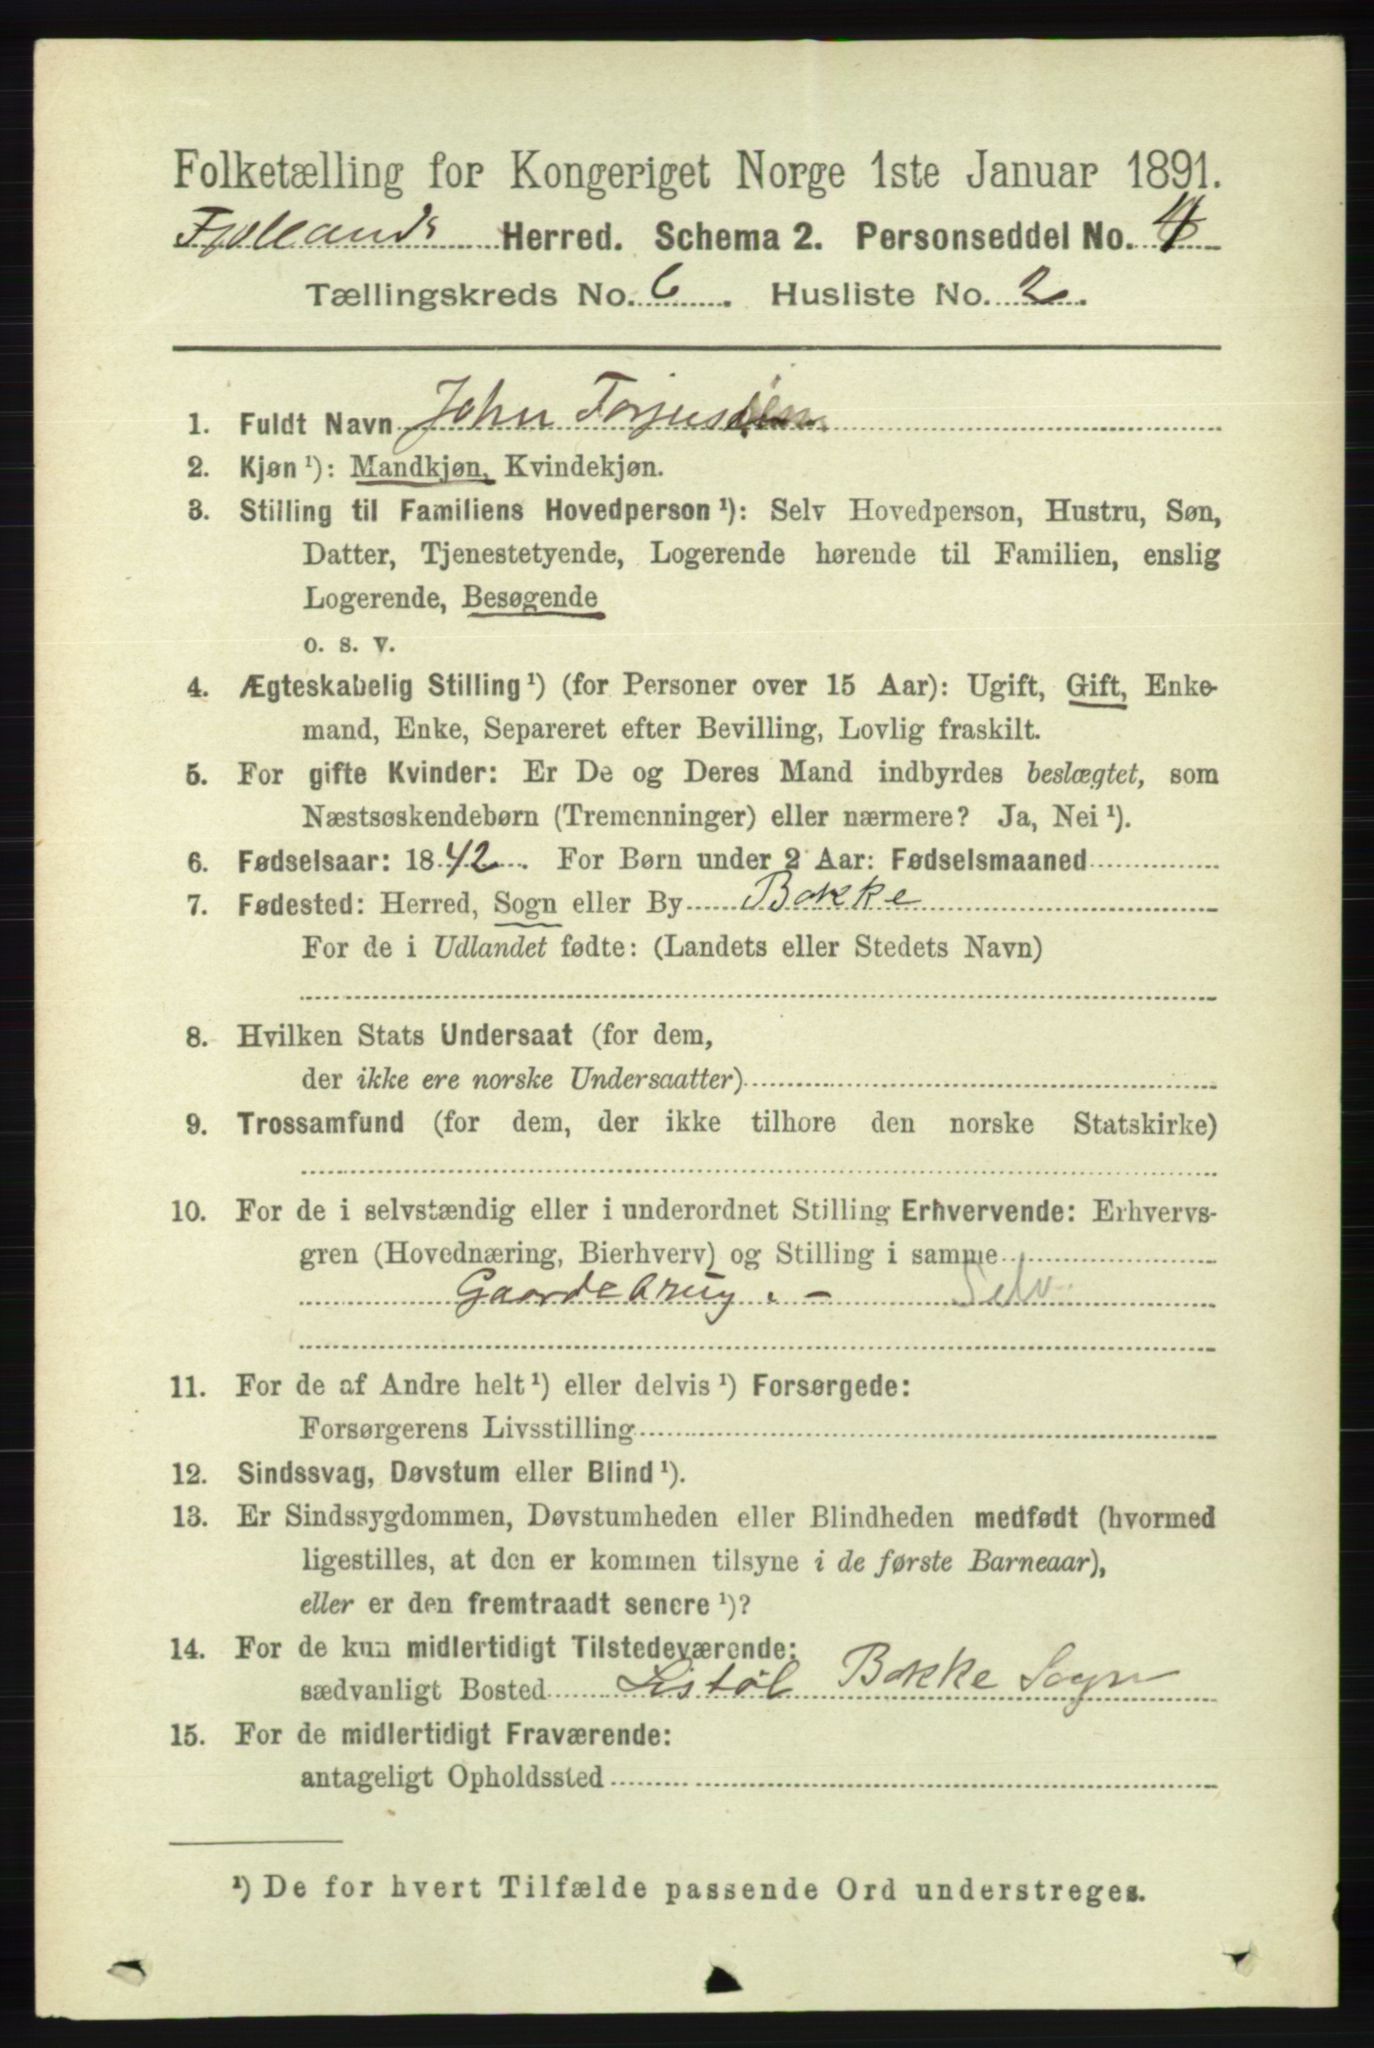 Folketælling for Kongeriget Norge 1ste Januar 1891.
Fjotlands Herred. Schema 2. Personseddel No.
Tællingskreds No. 6. Husliste No. 2.
1. Fuldt Navn John Torjusen
2. Kjøn ¹): Mandkjøn, Kvindekjøn.
3. Stilling til Familiens Hovedperson ¹): Selv Hovedperson, Hustru, Søn,
Datter, Tjenestetyende, Logerende hørende til Familien, enslig
Logerende, Besøgende
o. s. v.
4. Ægteskabelig Stilling ¹) (for Personer over 15 Aar): Ugift, Gift, Enke-
mand, Enke, Separeret efter Bevilling, Lovlig fraskilt.
5. For gifte Kvinder: Er De og Deres Mand indbyrdes beslægtet, som
Næstsøskendebørn (Tremenninger) eller nærmere? Ja, Nei ¹).
6. Fødselsaar: 1842. For Børn under 2 Aar: Fødselsmaaned
7. Fødested: Herred, Sogn eller By Bakke
For de i Udlandet fødte: (Landets eller Stedets Navn)
8. Hvilken Stats Undersaat (for dem,
der ikke ere norske Undersaatter)
9. Trossamfund (for dem, der ikke tilhøre den norske Statskirke)
10. For de i selvstændig eller i underordnet Stilling Erhvervende: Erhvervs-
gren (Hovednæring, Bierhverv) og Stilling i samme
Gaardebrug. - Selv
11. For de af Andre helt ¹) eller delvis ¹) Forsørgede:
Forsørgerens Livsstilling
12. Sindssvag, Døvstum eller Blind ¹).
13. Er Sindssygdommen, Døvstumheden eller Blindheden medfødt (hvormed
ligestilles, at den er kommen tilsyne i de første Barneaar),
eller er den fremtraadt senere ¹)?
14. For de kun midlertidigt Tilstedeværende:
sædvanligt Bosted Listøl Bakke Sogn
15. For de midlertidigt Fraværende:
antageligt Opholdssted
¹) De for hvert Tilfælde passende Ord understreges.